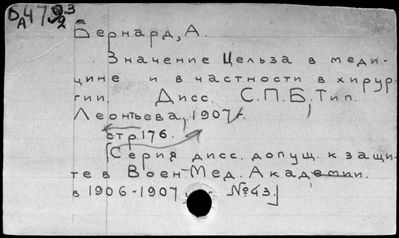 Бернард, А.
Значение Цельза в меди-
цине и в частности в хирур-
гии. Дисс. С.П.Б, Тип.
Леонтьева, 1907 г.
стр. 176.
[Серия дисс. допущ. к защи-
те в Воен-Мед. Академии.
в 1906-1907 №43]